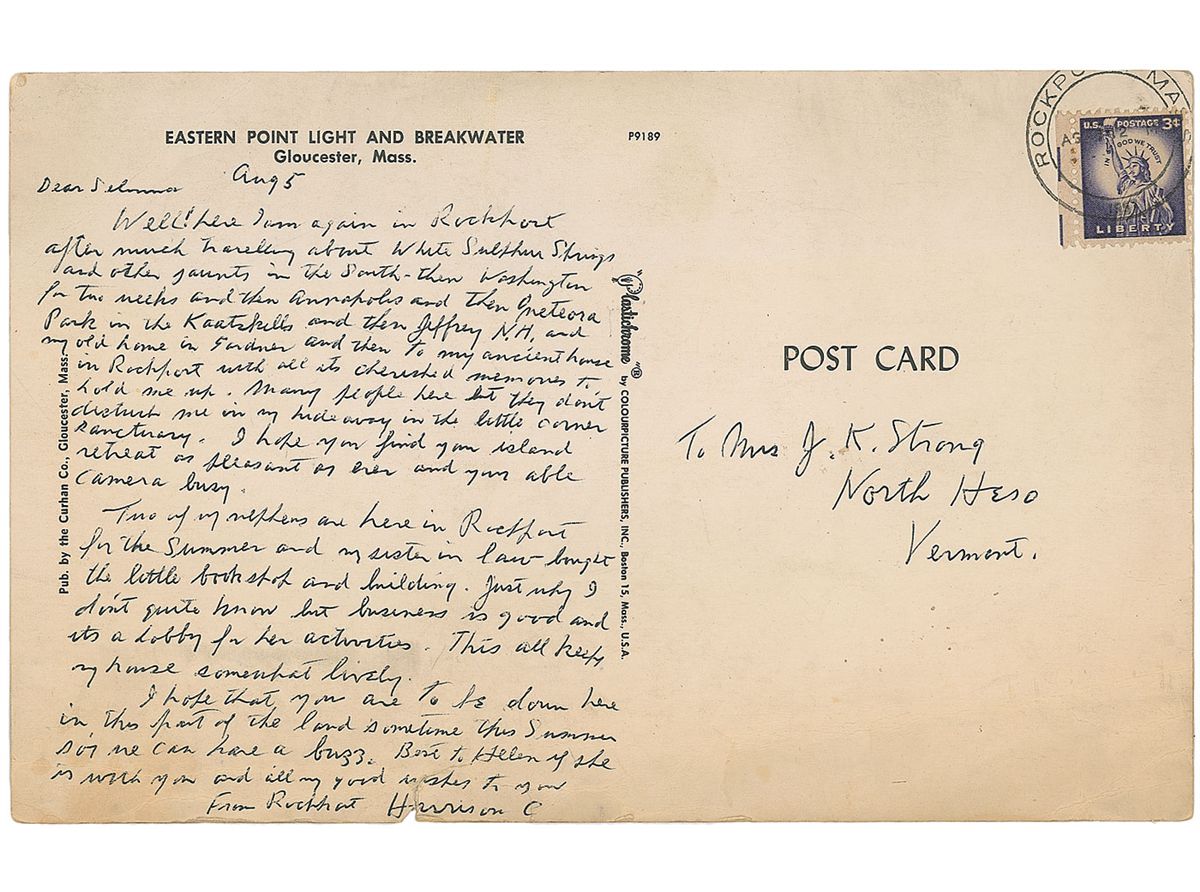 EASTERN POINT LIGHT AND BREAKWATER
Gloucester, Mass.
P9189
Aug 5
Dear
Well! here I am again in Rockport
after much travelling about White Sulphur Springs
and other jaunts in the South - then Washington
for two weeks and then Annapolis and then Onteora
Park in the Kaatskills and then Jeffrey N.H. and
my old home in Gardner and then to my ancient house
in Rockport with all its cherished memories to
hold me up. Many people here but they don't
disturb me in my hideaway in the little corner
sanctuary. I hope you find your island
retreat as pleasant as ever and your able
camera busy.
Two of my nephews are here in Rockport
for the Summer and my sister in law bought
the little bookshop and building. Just why I
don't quite know but business is good and
its a for her activities. This all keeps
my house somewhat lively.
I hope that you are to be down here
in this part of the land sometime this Summer
so we can have a buzz. Best to Helen if she
is with you and all my good wishes to you
From Rockport Harrison C
Pub. by the Curhan Co., Gloucester, Mass.
"Plastichrome"® by COLOURPICTURE PUBLISHERS, INC., Boston 15, Mass., U.S.A.
POST CARD
To Mrs J. K. Strong
North Hero
Vermont.
ROCKPORT MASS
U.S. POSTAGE 3¢
IN GOD WE TRUST
LIBERTY